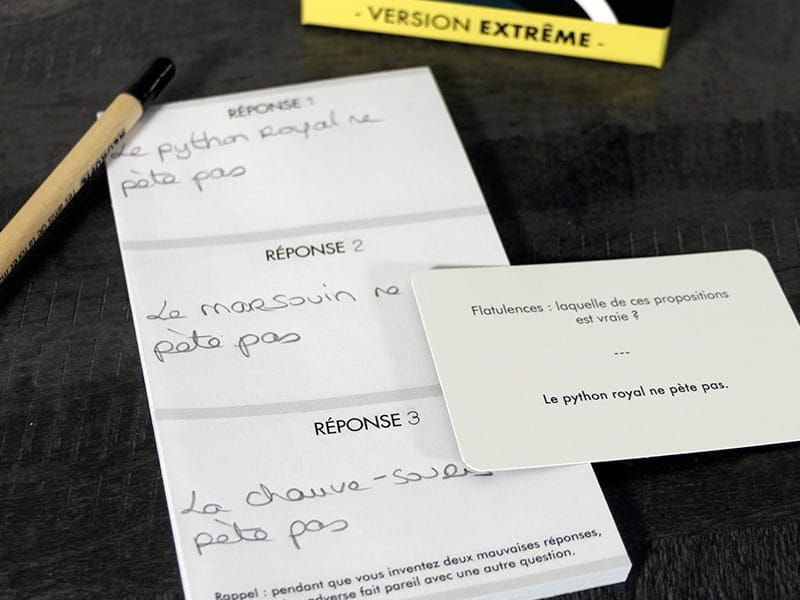 - VERSION EXTRÊME -
RÉPONSE 1
Le python royal ne
pète pas
RÉPONSE 2
Le marsouin ne
pète pas
RÉPONSE 3
La chauve-souris
pète pas
Rappel : pendant que vous inventez deux mauvaises réponses,
adverse fait pareil avec une autre question.
Flatulences : laquelle de ces propositions
est vraie ?
---
Le python royal ne pète pas.